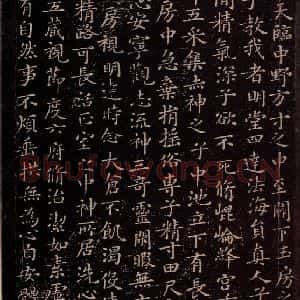 天臨中野方寸之中至關下玉房
子教我者明堂四達法海員真人子
間精氣深子欲不死脩崑崙絳宮
十五采集赤神之子中池立下有長
房中急棄捐搖俗專子精寸田尺
心安寧觀志流神三奇靈閑暇無
房視明達時念大倉不飢渴役
精路可長活正室之中神所居洗心
五藏視節度六府脩治潔如素虛
有自然事不煩垂拱無為心自安體
Shufawang.CN